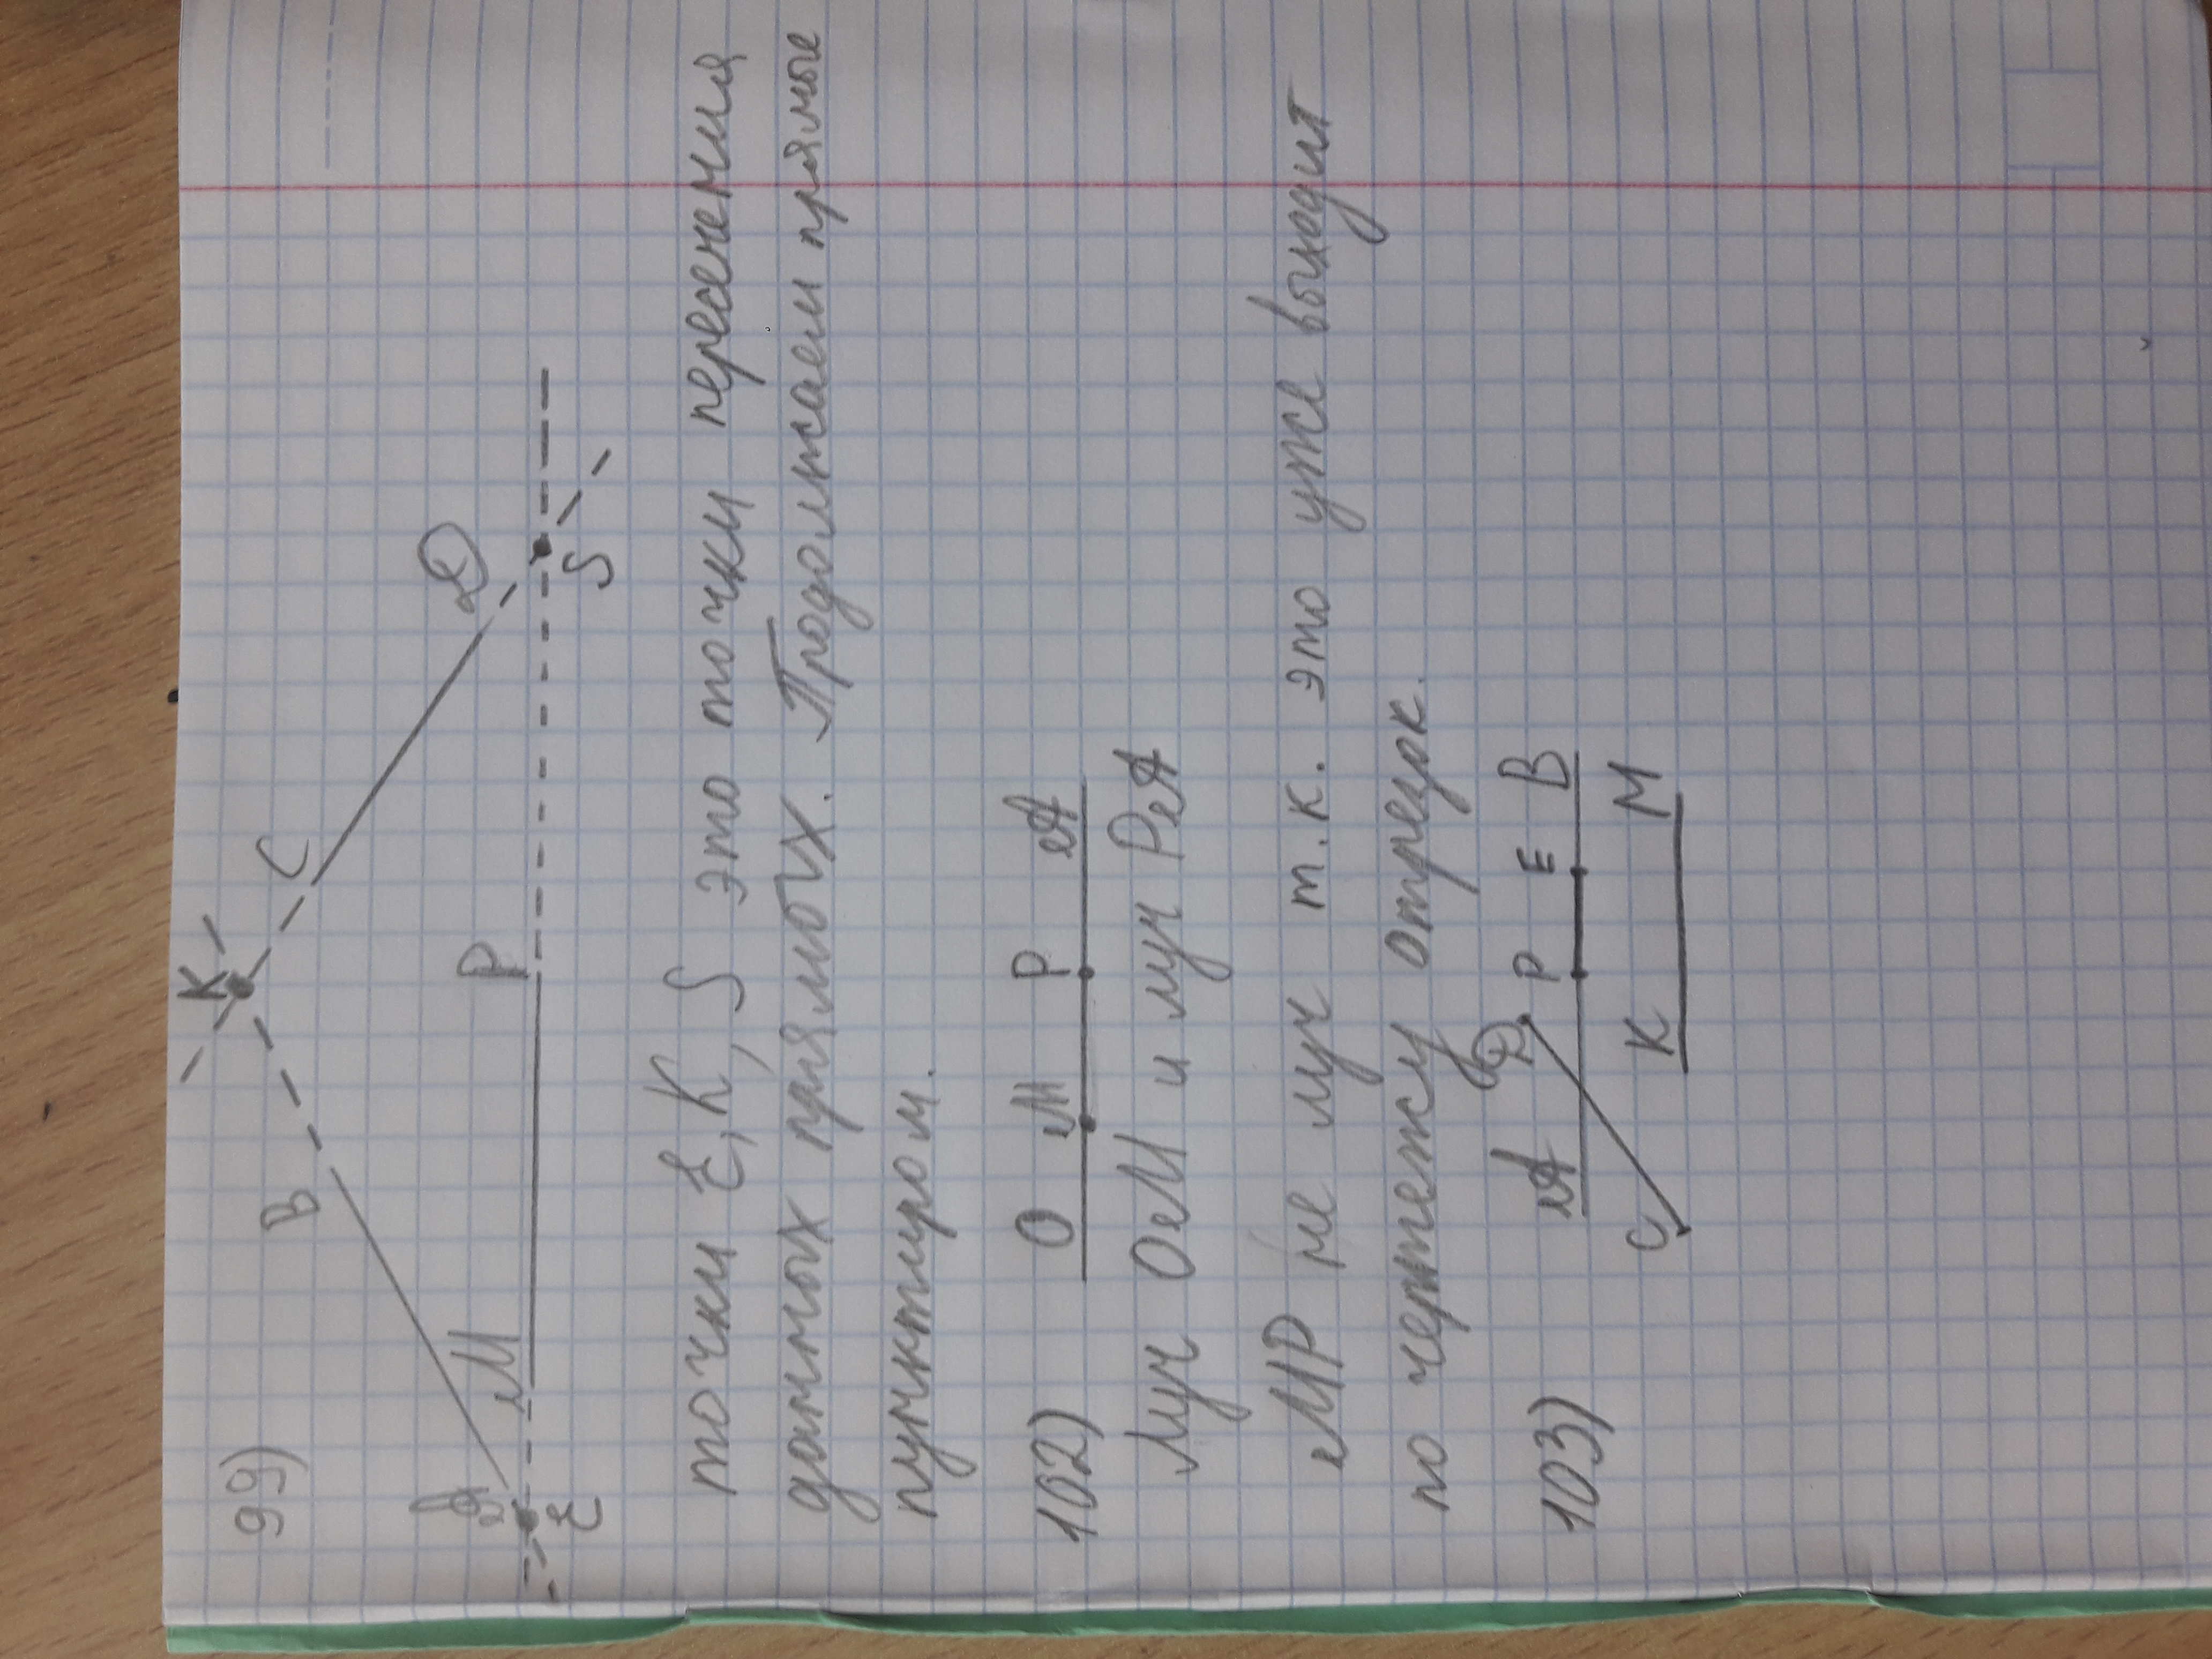 99)
K
B C
A M P D
E S
точки E, K, S это точки пересечения
данных прямых. Продолжаем прямые
пунктиром.
102) O M P A
Луч OM и луч PA
MP не луч т.к. это уже выходит
по чертежу отрезок.
103) A D P E B
C K M